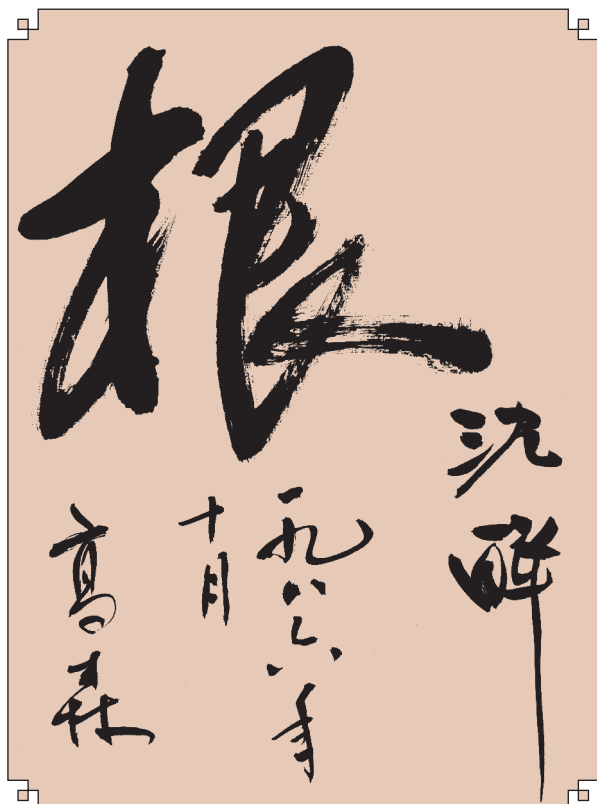 根
沈晖
一九八六年
十月
高森